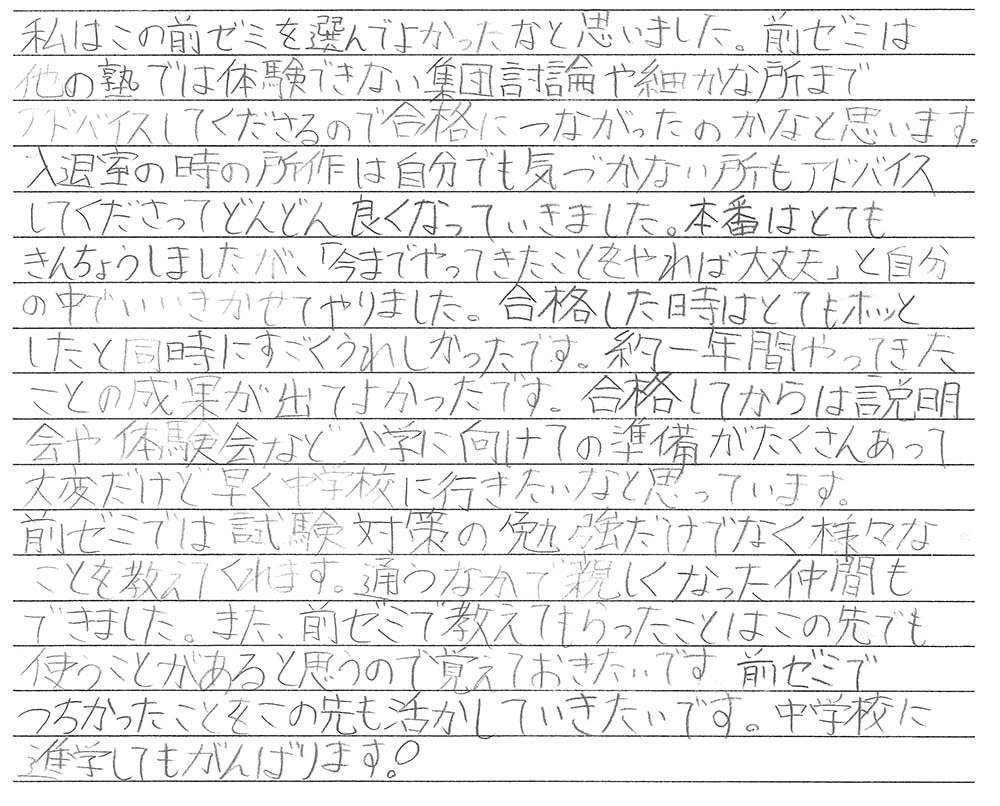 私はこの前ゼミを選んでよかったなと思いました。前ゼミは
他の塾では体験できない集団討論や細かな所まで
アドバイスしてくださるので合格につながったのかなと思います。
入退室の時の所作は自分でも気づかない所もアドバイス
してくださってどんどん良くなっていきました。本番はとても
きんちょうしましたが、「今までやってきたことをやれば大丈夫」と自分
の中でいいきかせてやりました。合格した時はとてもホッと
したと同時にすごくうれしかったです。約一年間やってきた
ことの成果が出てよかったです。合格してからは説明
会や体験会など入学に向けての準備がたくさんあって
大変だけど早く中学校に行きたいなと思っています。
前ゼミでは試験対策の勉強だけでなく様々な
ことを教えてくれます。通うなかで親しくなった仲間も
できました。また、前ゼミで教えてもらったことはこの先でも
使うことがあると思うので覚えておきたいです 前ゼミで
つちかったことをこの先も活かしていきたいです。中学校に
進学してもがんばります!